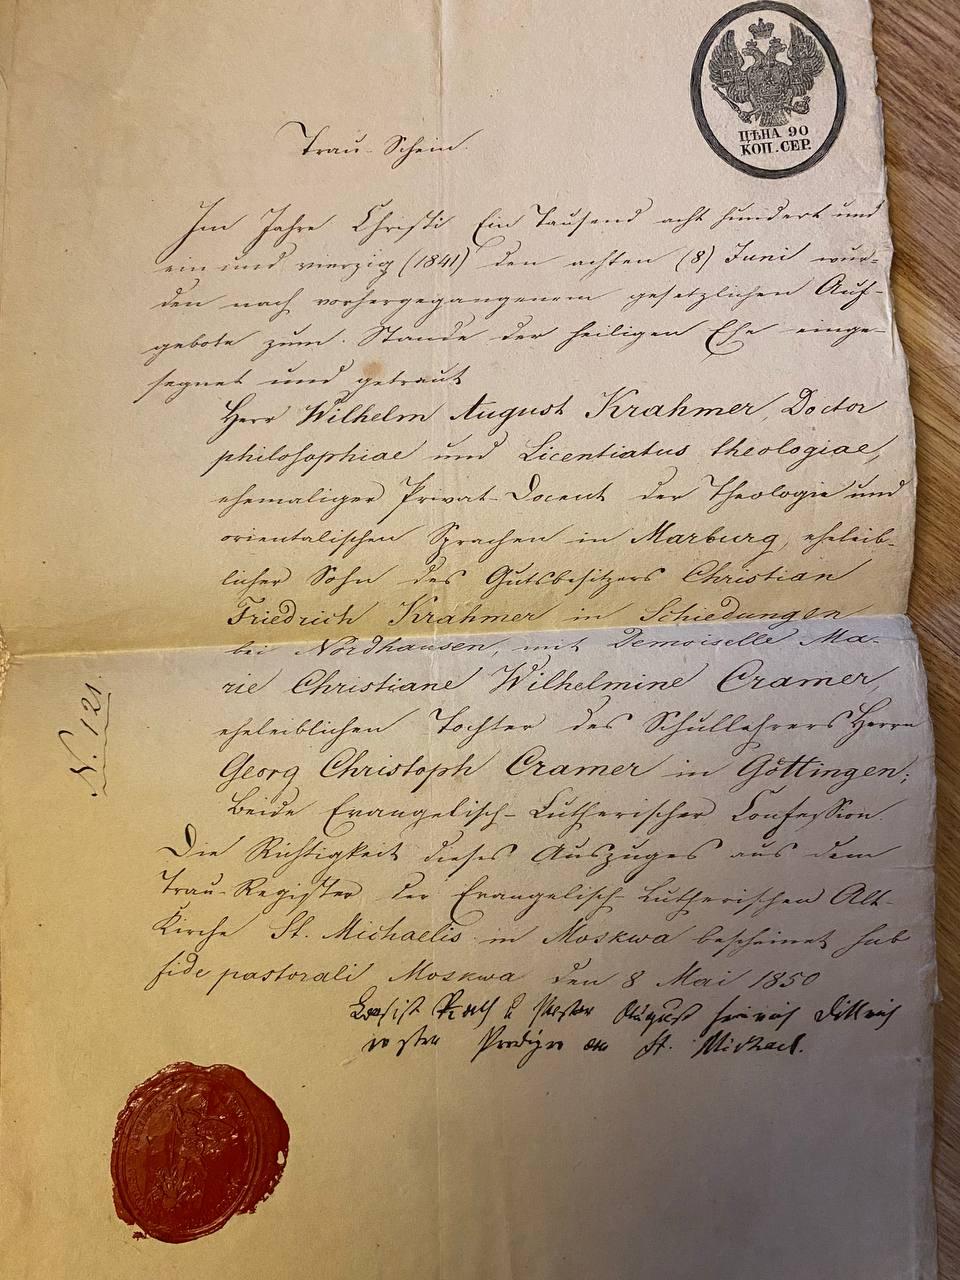 ЦѢНА 90
КОП. СЕР.
Trau-Schein.
Im Jahre Christi Ein Tausend acht hundert und
ein und vierzig (1841) den achten (8) Juni wur-
den nach vorhergegangenem gesetzlichen Auf-
gebote zum Stande der heiligen Ehe einge-
segnet und getraut
Herr Wilhelm August Krahmer, Doctor
philosophiae und Licentiatus theologiae,
ehemaliger Privat-Docent der Theologie und
orientalischen Sprachen in Marburg, eheleib-
licher Sohn des Gutsbesitzers Christian
Friedrich Krahmer in Schiedungen
bei Nordhausen, mit Demoiselle Ma-
rie Christiane Wilhelmine Cramer,
eheleiblichen Tochter des Schullehrers Herrn
Georg Christoph Cramer in Göttingen;
Beide Evangelisch-Lutherischer Confession.
N. 121.
Die Richtigkeit dieses Auszuges aus dem
Trau-Register der Evangelisch-Lutherischen Alt-
Kirche St. Michaelis in Moskwa bescheinet sub
fide pastorali Moskwa den 8 Mai 1850
August Heinrich Dittrich
Prediger an St. Michael.